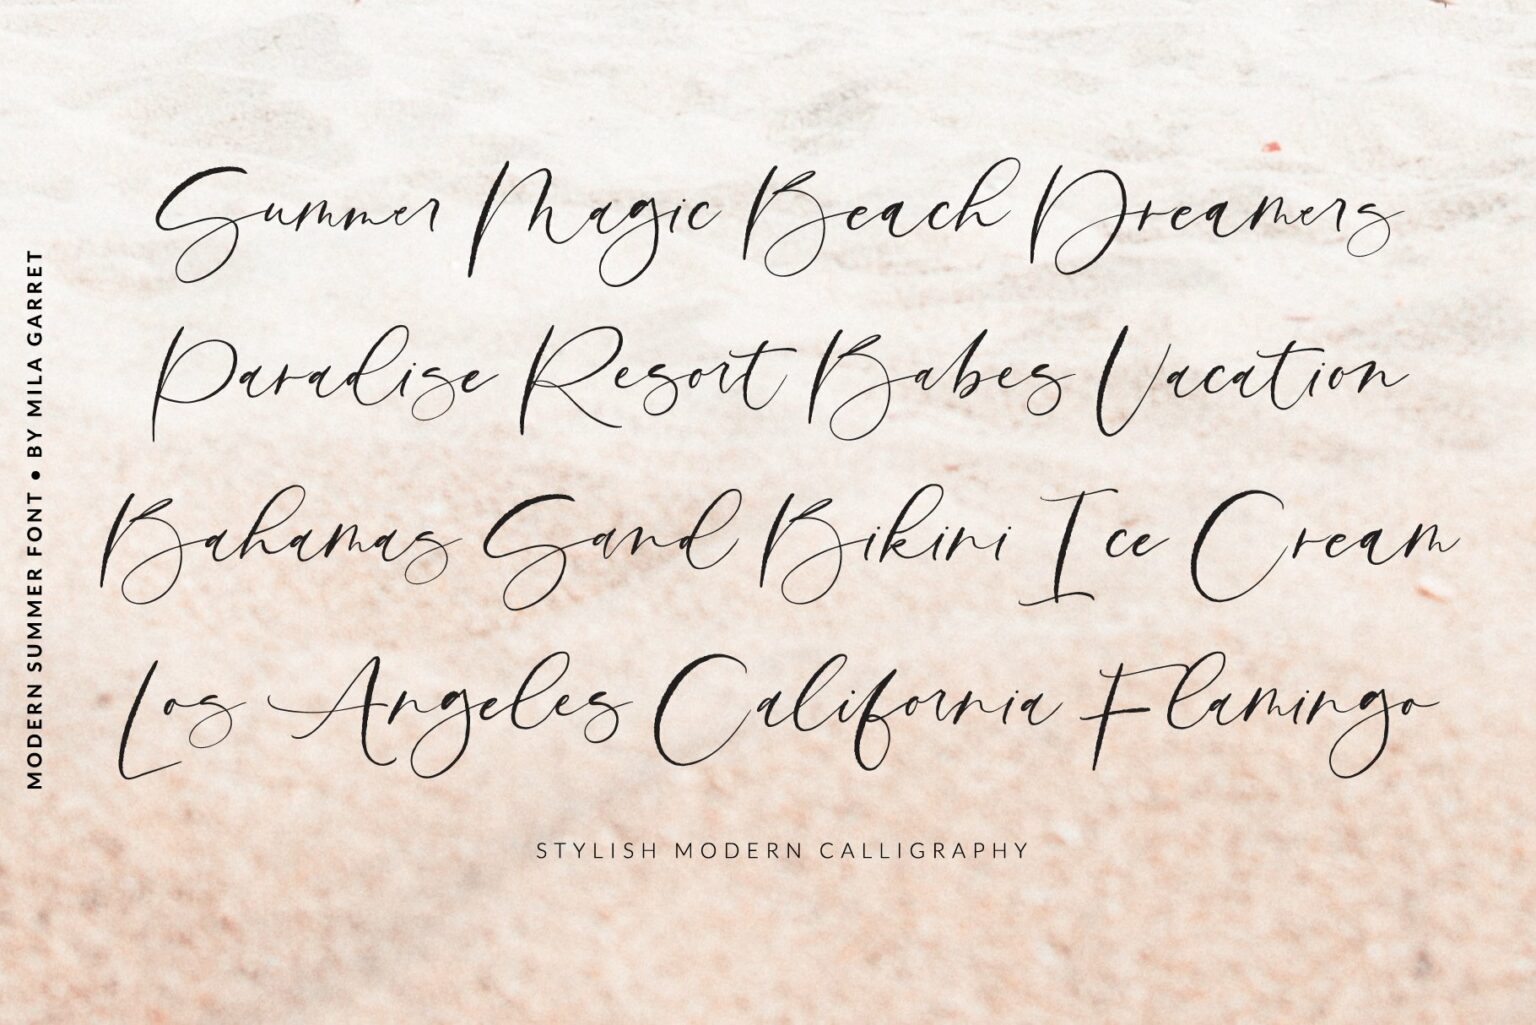 Summer Magic Beach Dreamers
Paradise Resort Babes Vacation
Bahamas Sand Bikini Ice Cream
Los Angeles California Flamingo
STYLISH MODERN CALLIGRAPHY
MODERN SUMMER FONT • BY MILA GARRET